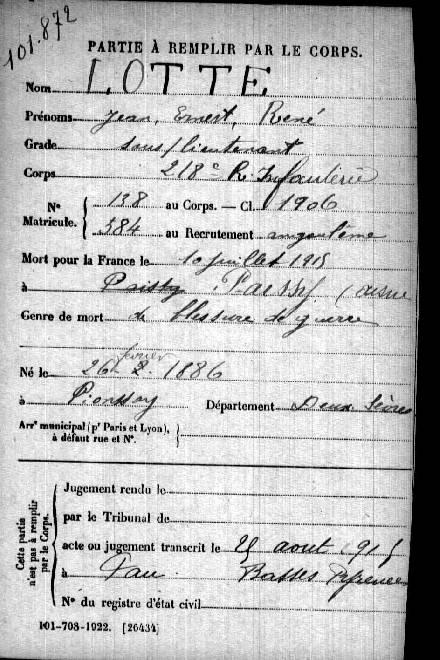 101.872
PARTIE À REMPLIR PAR LE CORPS.
Nom LOTTE
Prénoms Jean, Ernest, René
Grade sous/lieutenant
Corps 218e R. Infanterie
N° Matricule. { 138 au Corps. — Cl. 1906
384 au Recrutement angoulême
Mort pour la France le 10 juillet 1915
à Paissy Paissy (aisne
Genre de mort de blessure de guerre
Né le 26 février 2. 1886
à Département Deux Sèvres
Arrt municipal (pr Paris et Lyon), à défaut rue et N°.
Cette partie n'est pas à remplir par le Corps.
Jugement rendu le
par le Tribunal de
acte ou jugement transcrit le 25 aout 1915
à Pau Basses Pyrenees
N° du registre d'état civil
101-708-1922. [26434]